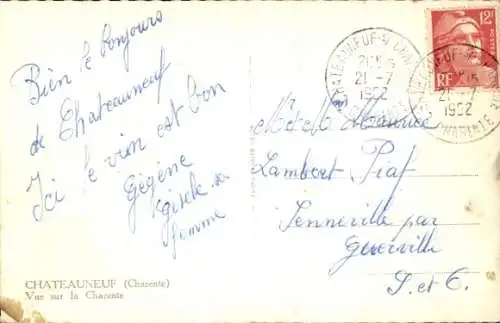 Bien le bonjours
de Chateauneuf
Ici le vin est bon
Gégène
Gisele sa
femme
CHATEAUNEUF (Charente)
Vue sur la Charente
12F
RF
CHATEAUNEUF-S-CHARENTE
21-7
1952
CHARENTE
21-7
1952
M et M Maurice
Lambert Piaf
Senneville par
Guerville
S. et O.